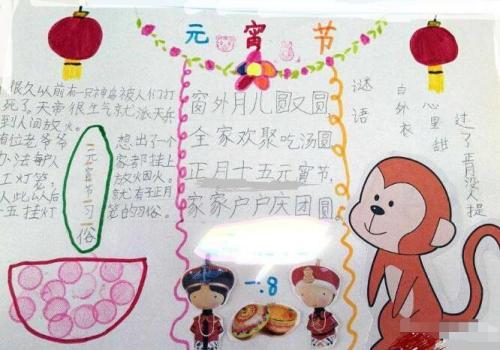 元宵节
很久以前有一只神鸟被人们打
死了。天帝很生气就派天兵
到人间放火。
有位老爷爷 想出了个
办法每户人 家都挂上
灯笼， 放烟火。
此以后 就有了正月
五挂灯 笼的习俗
元宵节习俗
窗外月儿圆又圆
全家欢聚吃汤圆。
正月十五元宵节，
家家户户庆团圆。
谜语
白外衣
心里甜
过了 没人提